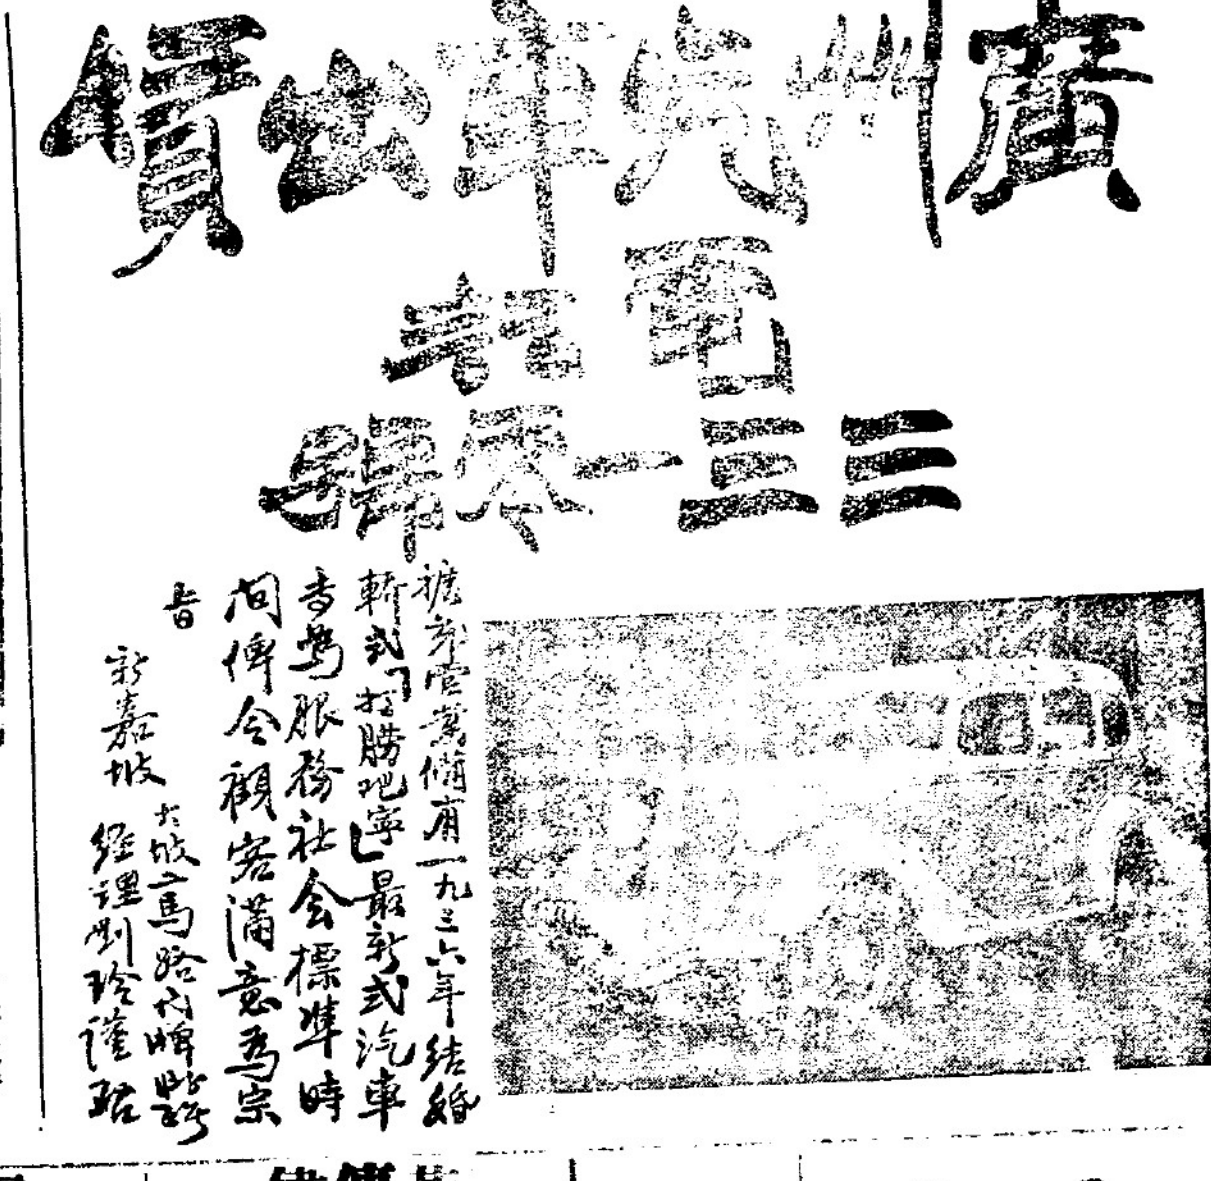 廣州汽車出賃
電話
三三一零號
營業備有一九三六年結婚
轎式「打勝吧寧」最新式汽車
專為服務社會標準時
間俾令顧客滿意為宗
旨
新嘉坡
大坡二馬路門牌
經理劉玲謹啓